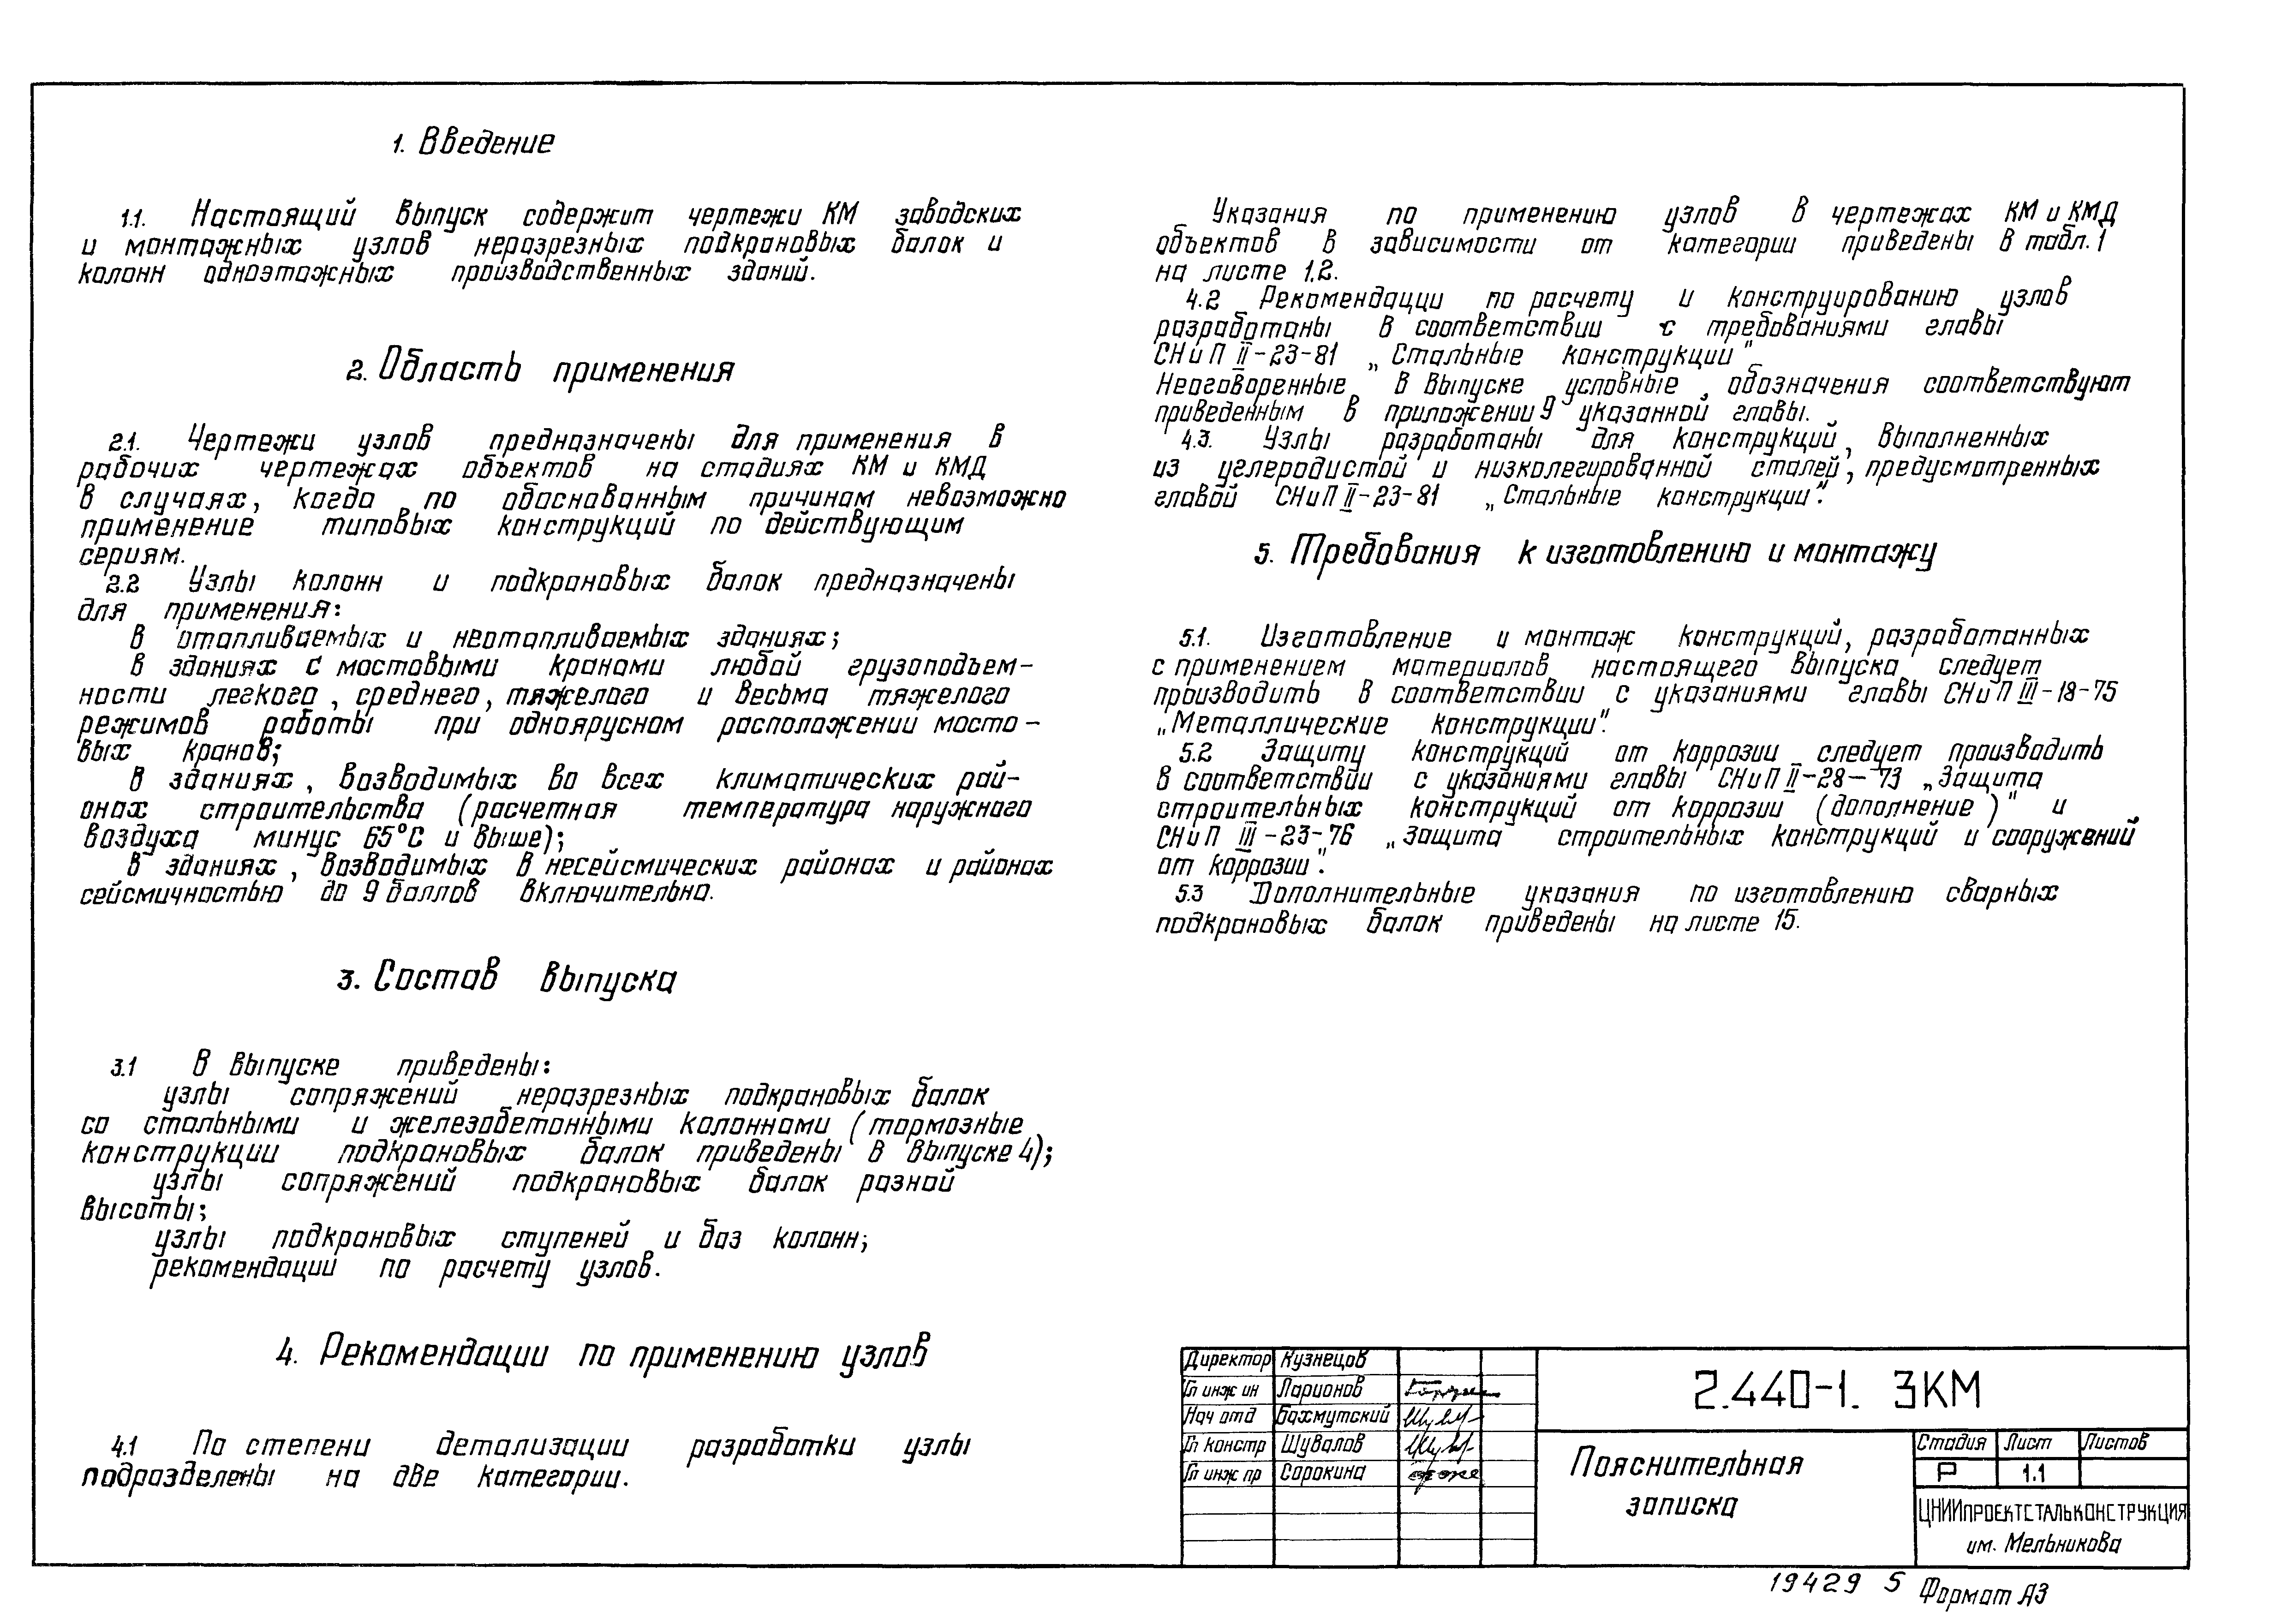 1. Введение
1.1. Настоящий выпуск содержит чертежи КМ заводских
и монтажных узлов неразрезных подкрановых балок и
колонн одноэтажных производственных зданий.
2. Область применения
2.1. Чертежи узлов предназначены для применения в
рабочих чертежах объектов на стадиях КМ и КМД
в случаях, когда по обоснованным причинам невозможно
применение типовых конструкций по действующим
сериям.
2.2 Узлы колонн и подкрановых балок предназначены
для применения:
в отапливаемых и неотапливаемых зданиях;
в зданиях с мостовыми кранами любой грузоподъем-
ности легкого, среднего, тяжелого и весьма тяжелого
режимов работы при одноярусном расположении мосто-
вых кранов;
в зданиях, возводимых во всех климатических рай-
онах строительства (расчетная температура наружного
воздуха минус 65°С и выше);
в зданиях, возводимых в несейсмических районах и районах
сейсмичностью до 9 баллов включительно.
3. Состав выпуска
3.1 В выпуске приведены:
узлы сопряжений неразрезных подкрановых балок
со стальными и железобетонными колоннами (тормозные
конструкции подкрановых балок приведены в выпуске 4);
узлы сопряжений подкрановых балок разной
высоты;
узлы подкрановых ступеней и баз колонн;
рекомендации по расчету узлов.
4. Рекомендации по применению узлов
4.1 По степени детализации разработки узлы
подразделены на две категории.
Указания по применению узлов в чертежах КМ и КМД
объектов в зависимости от категории приведены в табл. 1
на листе 1.2.
4.2 Рекомендацци по расчету и конструированию узлов
разработаны в соответствии с требованиями главы
СНиП II-23-81 „Стальные конструкции"
Неоговоренные в выпуске условные обозначения соответствуют
приведенным в приложении 9 указанной главы.
4.3. Узлы разработаны для конструкций, выполненных
из углеродистой и низколегированной сталей, предусмотренных
главой СНиП II-23-81 „Стальные конструкции".
5. Требования к изготовлению и монтажу
5.1. Изготовление и монтаж конструкций, разработанных
с применением материалов настоящего выпуска следует
производить в соответствии с указаниями главы СНиП III-18-75
„Металлические конструкции".
5.2 Защиту конструкций от коррозии следует производить
в соответствии с указаниями главы СНиП II-28-73 „Защита
строительных конструкций от коррозии (дополнение)" и
СНиП III-23-76 „Защита строительных конструкций и сооружений
от коррозии".
5.3 Дополнительные указания по изготовлению сварных
подкрановых балок приведены на листе 15.
Директор Кузнецов
Гл инж ин Ларионов
Нач отд Бахмутский
Гл констр Шувалов
Гл инж пр Сорокина
2.440-1. 3КМ
Пояснительная
записка
Стадия Лист Листов
Р 1.1
ЦНИИПРОЕКТСТАЛЬКОНСТРУКЦИЯ
им. Мельникова
19429 5 Формат А3